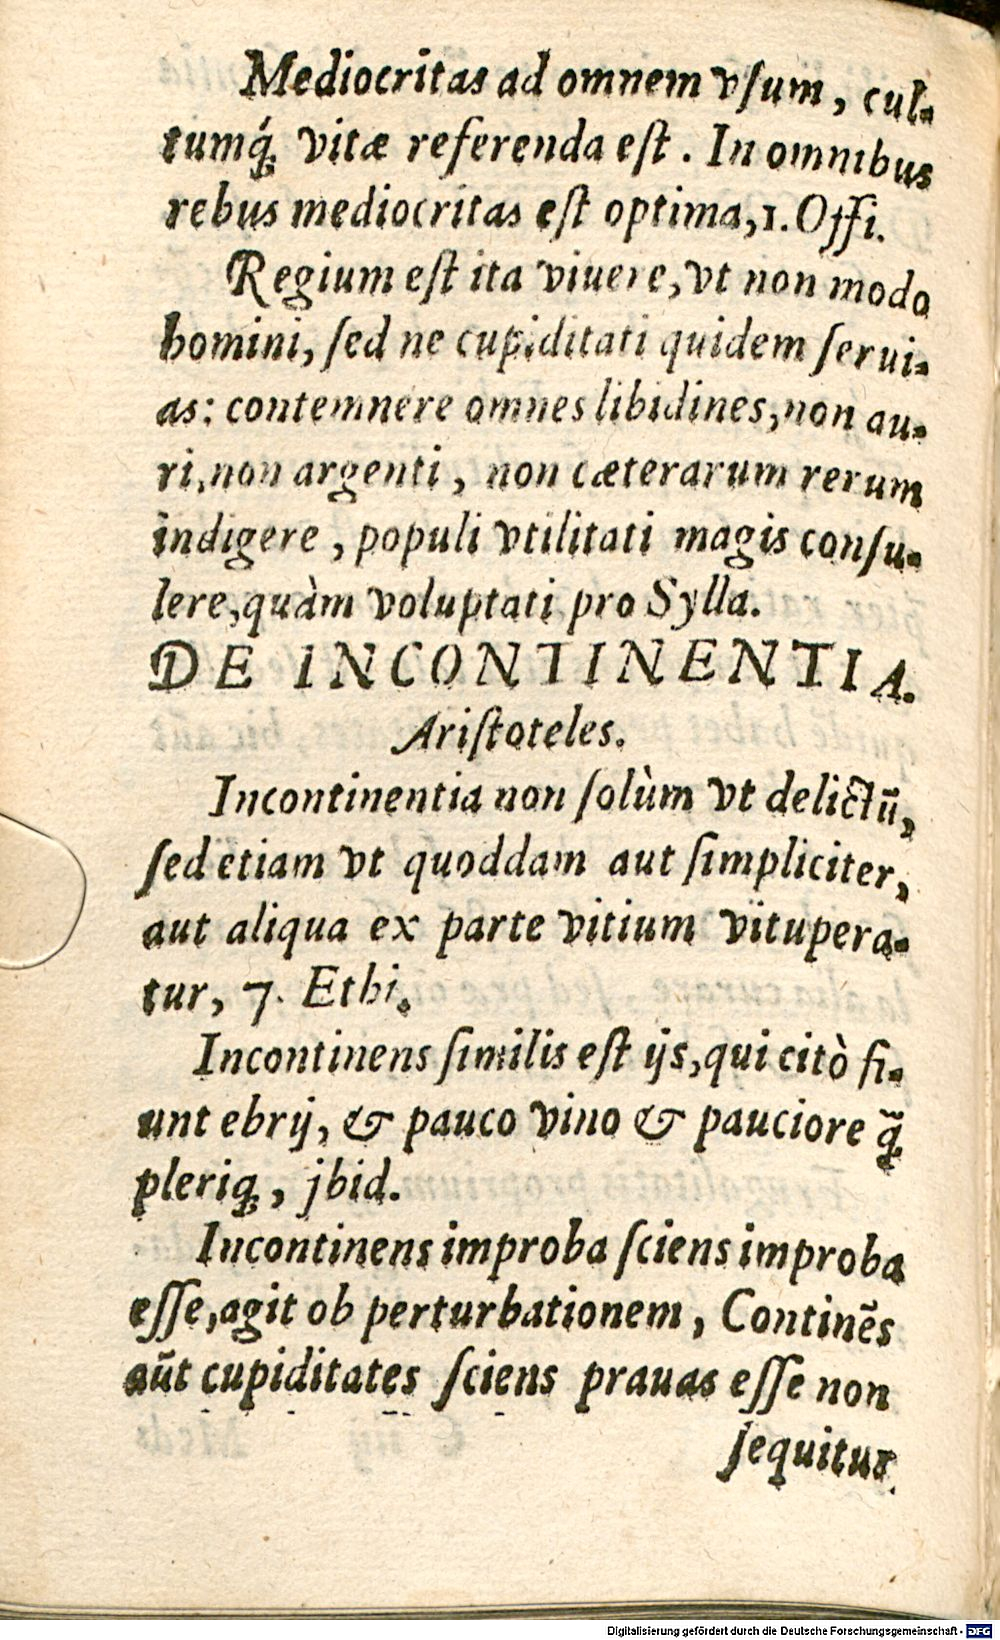 Mediocritas ad omnem vſum, cul-
tumq́; vitæ referenda eſt. In omnibus
rebus mediocritas eſt optima, 1. Offi.
Regium eſt ita viuere, vt non modo
homini, ſed ne cupiditati quidem ſerui-
as: contemnere omnes libidines, non au-
ri, non argenti, non cæterarum rerum
indigere, populi vtilitati magis conſu-
lere, quàm voluptati pro Sylla.
DE INCONTINENTIA.
Ariſtoteles.
Incontinentia non ſolùm vt delictū,
ſed etiam vt quoddam aut ſimpliciter,
aut aliqua ex parte vitium vitupera-
tur, 7. Ethi.
Incontinens ſimilis eſt ijs, qui citò fi-
unt ebrij, & pauco vino & pauciore q̃;
pleriq;, jbid.
Incontinens improba ſciens improba
eſſe, agit ob perturbationem, Continẽs
aūt cupiditates ſciens prauas eſſe non
ſequitur.
Digitalisierung gefördert durch die Deutsche Forschungsgemeinschaft - DFG